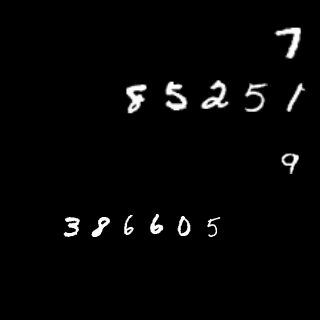 7
85251
9
386605